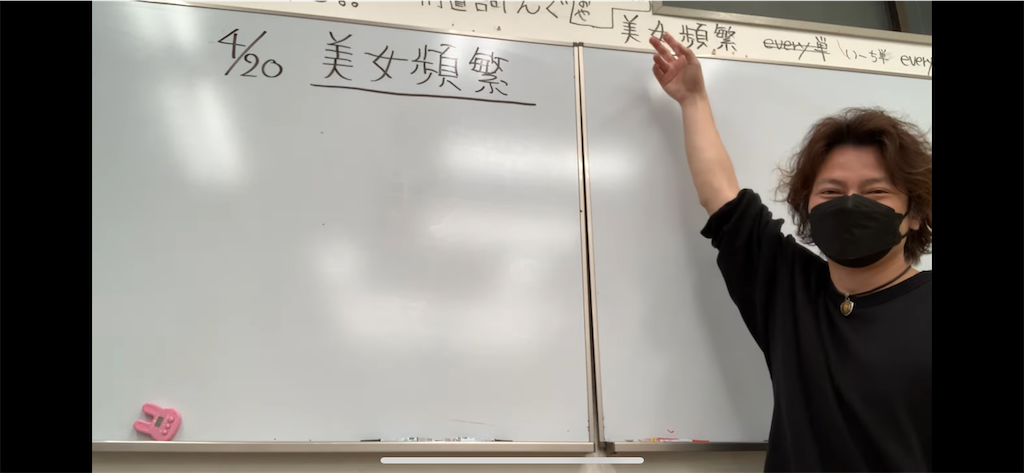 美女頻繁 every単 いーち単 every
4/20 美女頻繁